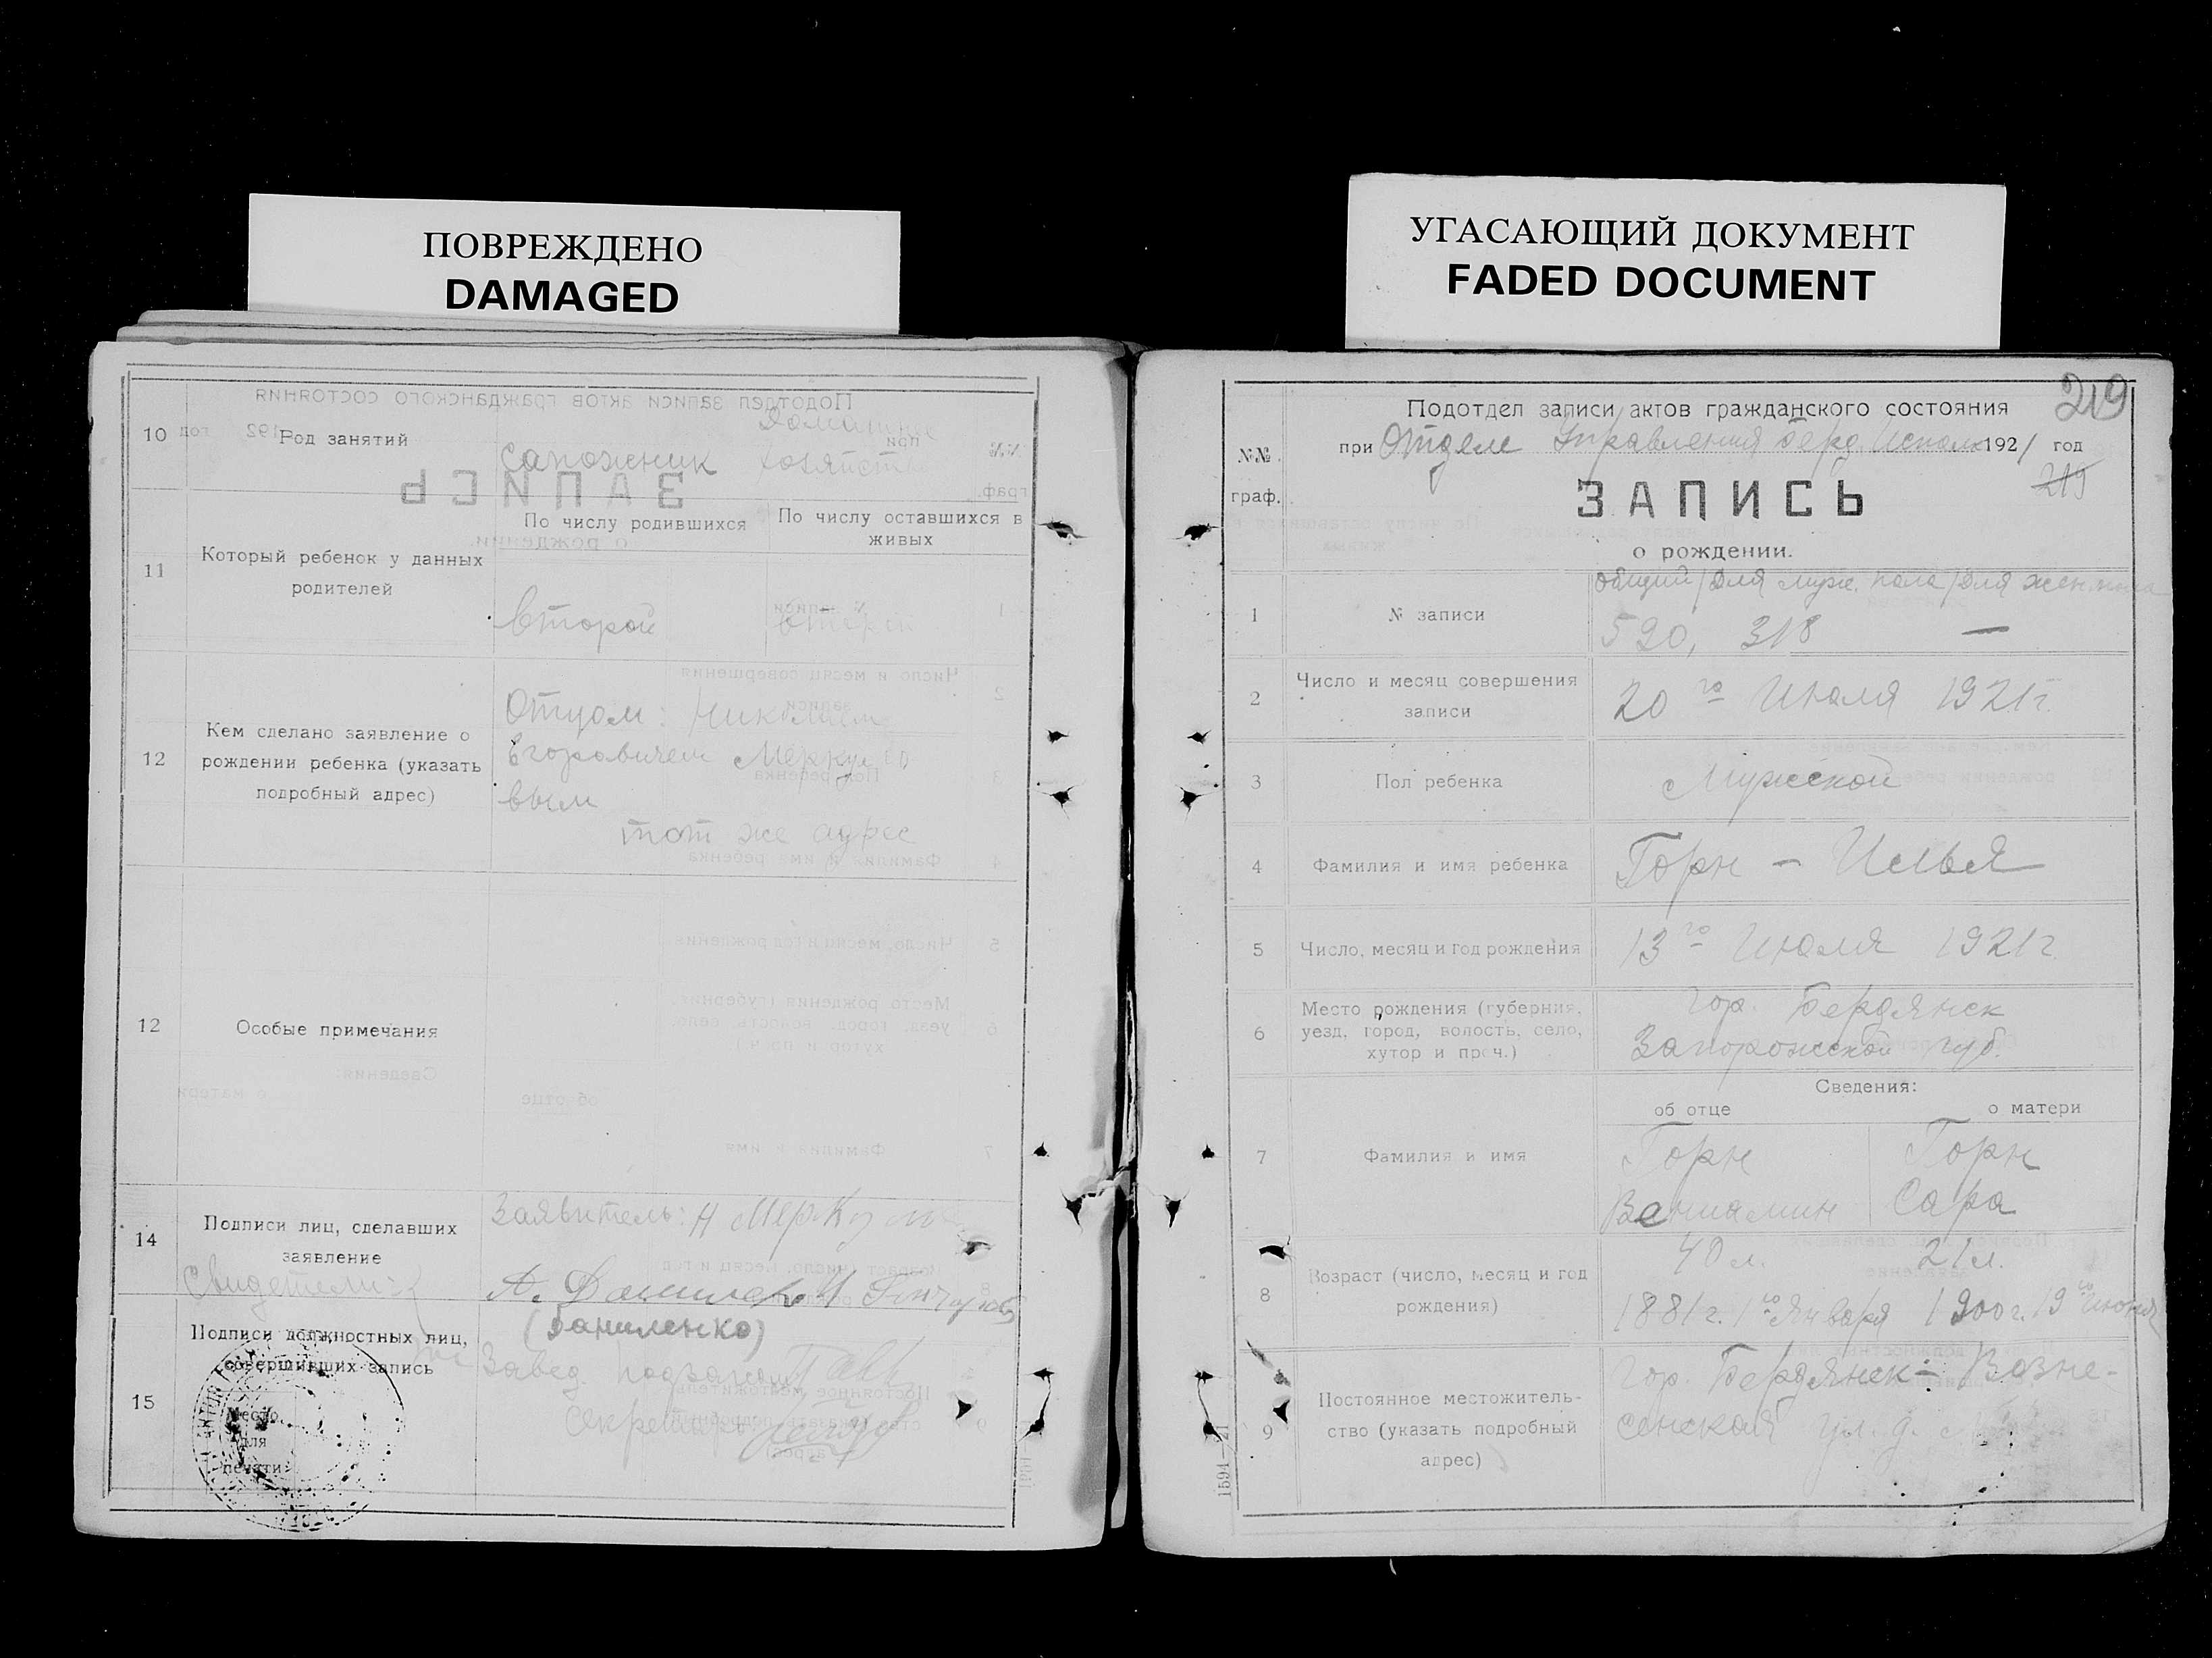 ПОВРЕЖДЕНО
DAMAGED
10
Род занятий
сапожник
Домашнее хозяйство
11
Который ребенок у данных
родителей
По числу родившихся
По числу оставшихся в
живых
второй
второй
12
Кем сделано заявление о
рождении ребенка (указать
подробный адрес)
Отцом: Николаем
Егоровичем Меркуло
вым
тот же адрес
12
Особые примечания
14
Подписи лиц, сделавших
заявление
Заявитель: Н Меркулов
Свидетели:
А. Даниленко И Гончаров
(Даниленко)
15
Подписи должностных лиц,
совершивших запись
Место
для
печати
Завед. подзагсом
Секретарь
УГАСАЮЩИЙ ДОКУМЕНТ
FADED DOCUMENT
219
Подотдел записи актов гражданского состояния
при Отделе Управления Берд. Исполк 1921 год
219
№№
граф.
ЗАПИСЬ
о рождении.
1
№ записи
общий/для муж. пола/для жен. пола
590, 318 —
2
Число и месяц совершения
записи
20го Июля 1921г.
3
Пол ребенка
Мужской
4
Фамилия и имя ребенка
Горн - Илья
5
Число, месяц и год рождения
13го Июля 1921г.
6
Место рождения (губерния,
уезд, город, волость, село,
хутор и проч.)
гор. Бердянск
Запорожской губ.
Сведения:
об отце
о матери
7
Фамилия и имя
Горн
Вениамин
Горн
Сара
8
Возраст (число, месяц и год
рождения)
40 л.
1881г. 1го Января
21 л.
1900г. 19го Июня
9
Постоянное местожитель-
ство (указать подробный
адрес)
гор. Бердянск - Возне-
сенская ул. д.
1594—21